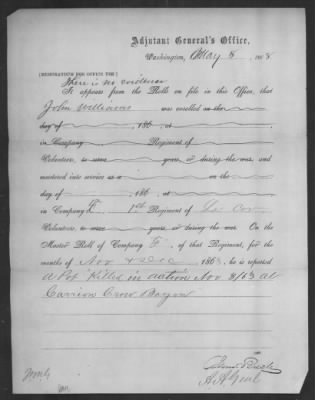 Adjutant General's Office,
Washington, May 8 , 186
[MEMORANDUM FOR OFFICE USE]
There is no evidence
It appears from the Rolls on file in this Office, that
John Williams was enrolled on the
day of , 186 , at
in Company Regiment of
Volunteers, to serve years, or during the war, and
mustered into service as a on the
day of , 186 , at
in Company F 1st Regiment of La Cav
Volunteers, to serve years, or during the war. On the
Muster Roll of Company F , of that Regiment, for the
months of Nov & Dec , 1863, he is reported
a Pvt Killed in action Nov 3/63 at
Carrion Crow Bayou
A A Genl